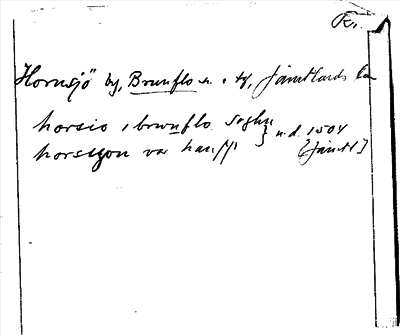 Kr.
Hornsjö by, Brunflo s. o tg, Jämtlands län
horsio i brwnflo soghn
horsiyon var han } n.d. 1504 [Jämtl]